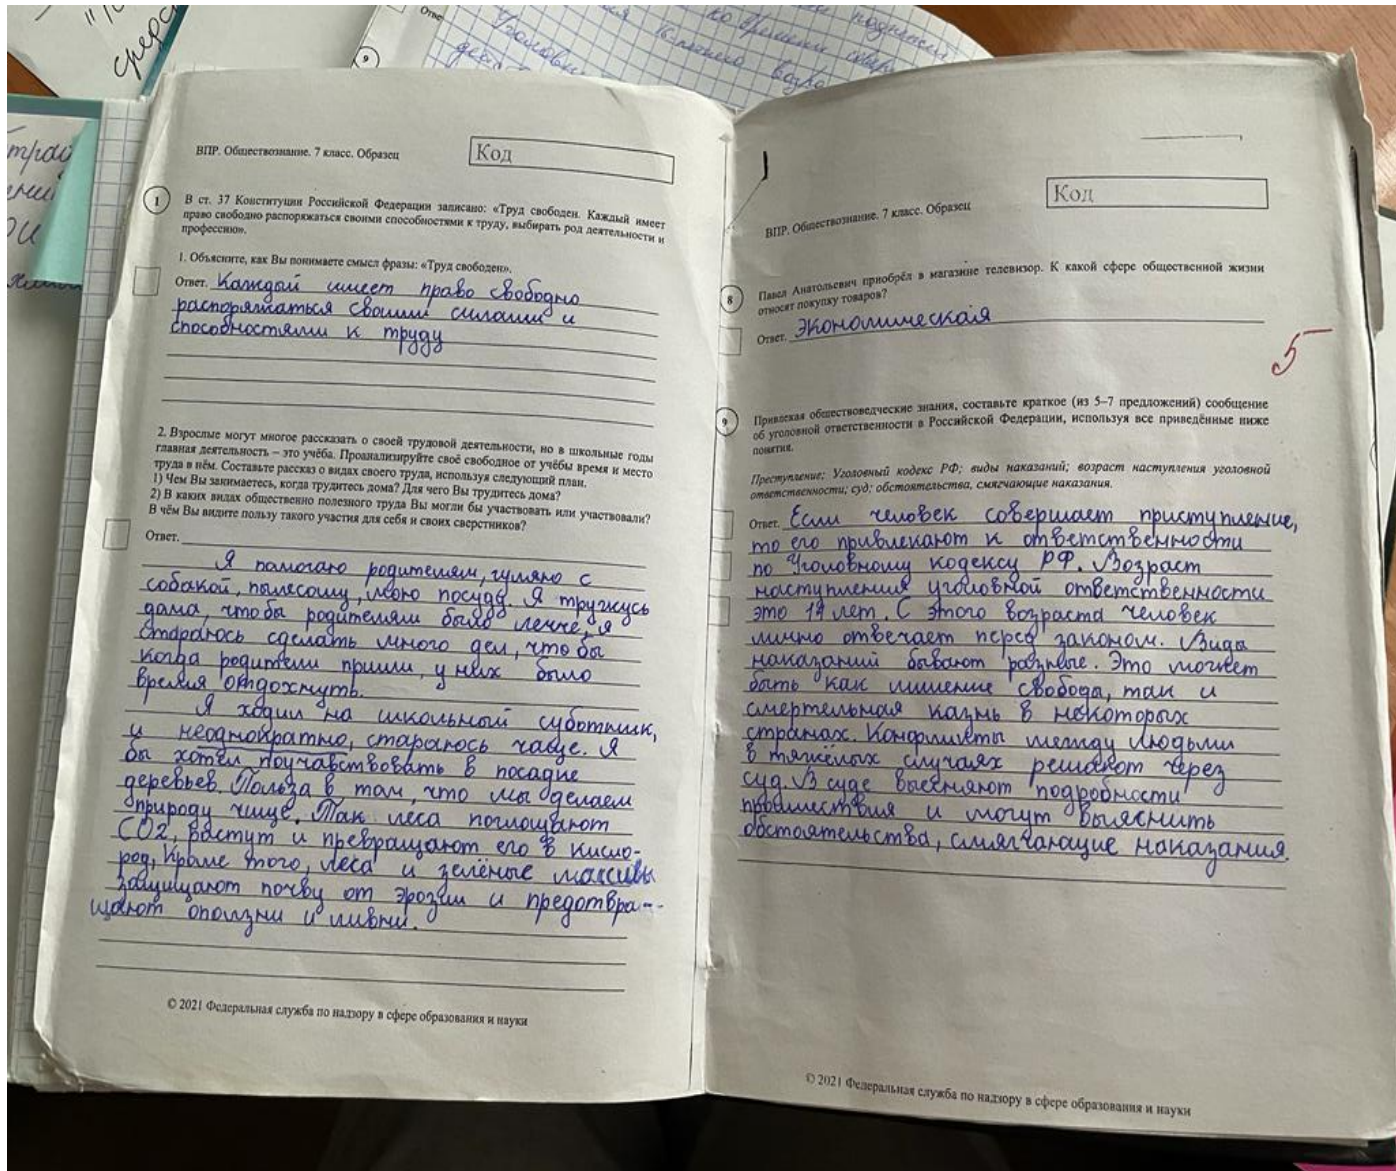 ВПР. Обществознание. 7 класс. Образец
Код
1
В ст. 37 Конституции Российской Федерации записано: «Труд свободен. Каждый имеет
право свободно распоряжаться своими способностями к труду, выбирать род деятельности и
профессию».
1. Объясните, как Вы понимаете смысл фразы: «Труд свободен».
Ответ. Каждый имеет право свободно
распоряжаться своими силами и
способностями к труду
2. Взрослые могут многое рассказать о своей трудовой деятельности, но в школьные годы
главная деятельность – это учёба. Проанализируйте своё свободное от учёбы время и место
труда в нём. Составьте рассказ о видах своего труда, используя следующий план.
1) Чем Вы занимаетесь, когда трудитесь дома? Для чего Вы трудитесь дома?
2) В каких видах общественно полезного труда Вы могли бы участвовать или участвовали?
В чём Вы видите пользу такого участия для себя и своих сверстников?
Ответ.
Я помогаю родителям, гуляю с
собакой, пылесошу, мою посуду. Я тружусь
дома, чтобы родителям было легче, я
стараюсь сделать много дел, что бы
когда родители пришли, у них было
время отдохнуть.
Я ходил на школьный суботник,
и неоднократно, стараюсь чаще. Я
бы хотел поучавствовать в посадке
деревьев. Польза в том, что мы делаем
природу чище. Так леса поглощают
СО2, растут и превращают его в кисло-
род, кроме того, леса и зелёные массивы
защищают почву от эрозии и предотвра-
щают оползни и ливни.
© 2021 Федеральная служба по надзору в сфере образования и науки
ВПР. Обществознание. 7 класс. Образец
Код
8
Павел Анатольевич приобрёл в магазине телевизор. К какой сфере общественной жизни
относят покупку товаров?
Ответ. Экономическая
5
9
Привлекая обществоведческие знания, составьте краткое (из 5–7 предложений) сообщение
об уголовной ответственности в Российской Федерации, используя все приведённые ниже
понятия.
Преступление; Уголовный кодекс РФ; виды наказаний; возраст наступления уголовной
ответственности; суд; обстоятельства, смягчающие наказания.
Ответ. Если человек совершает приступление,
то его привлекают к ответственности
по Уголовному кодексу РФ. Возраст
наступления уголовной ответственности
это 14 лет. С этого возраста человек
лично отвечает перед законом. Виды
наказаний бывают разные. Это может
быть как лишение свобода, так и
смертельная казнь в некоторых
странах. Конфликты между людьми
в тяжёлых случаях решают через
суд. В суде выесняют подробности
проишествия и могут выяснить
обстоятельства, смягчающие наказания.
© 2021 Федеральная служба по надзору в сфере образования и науки